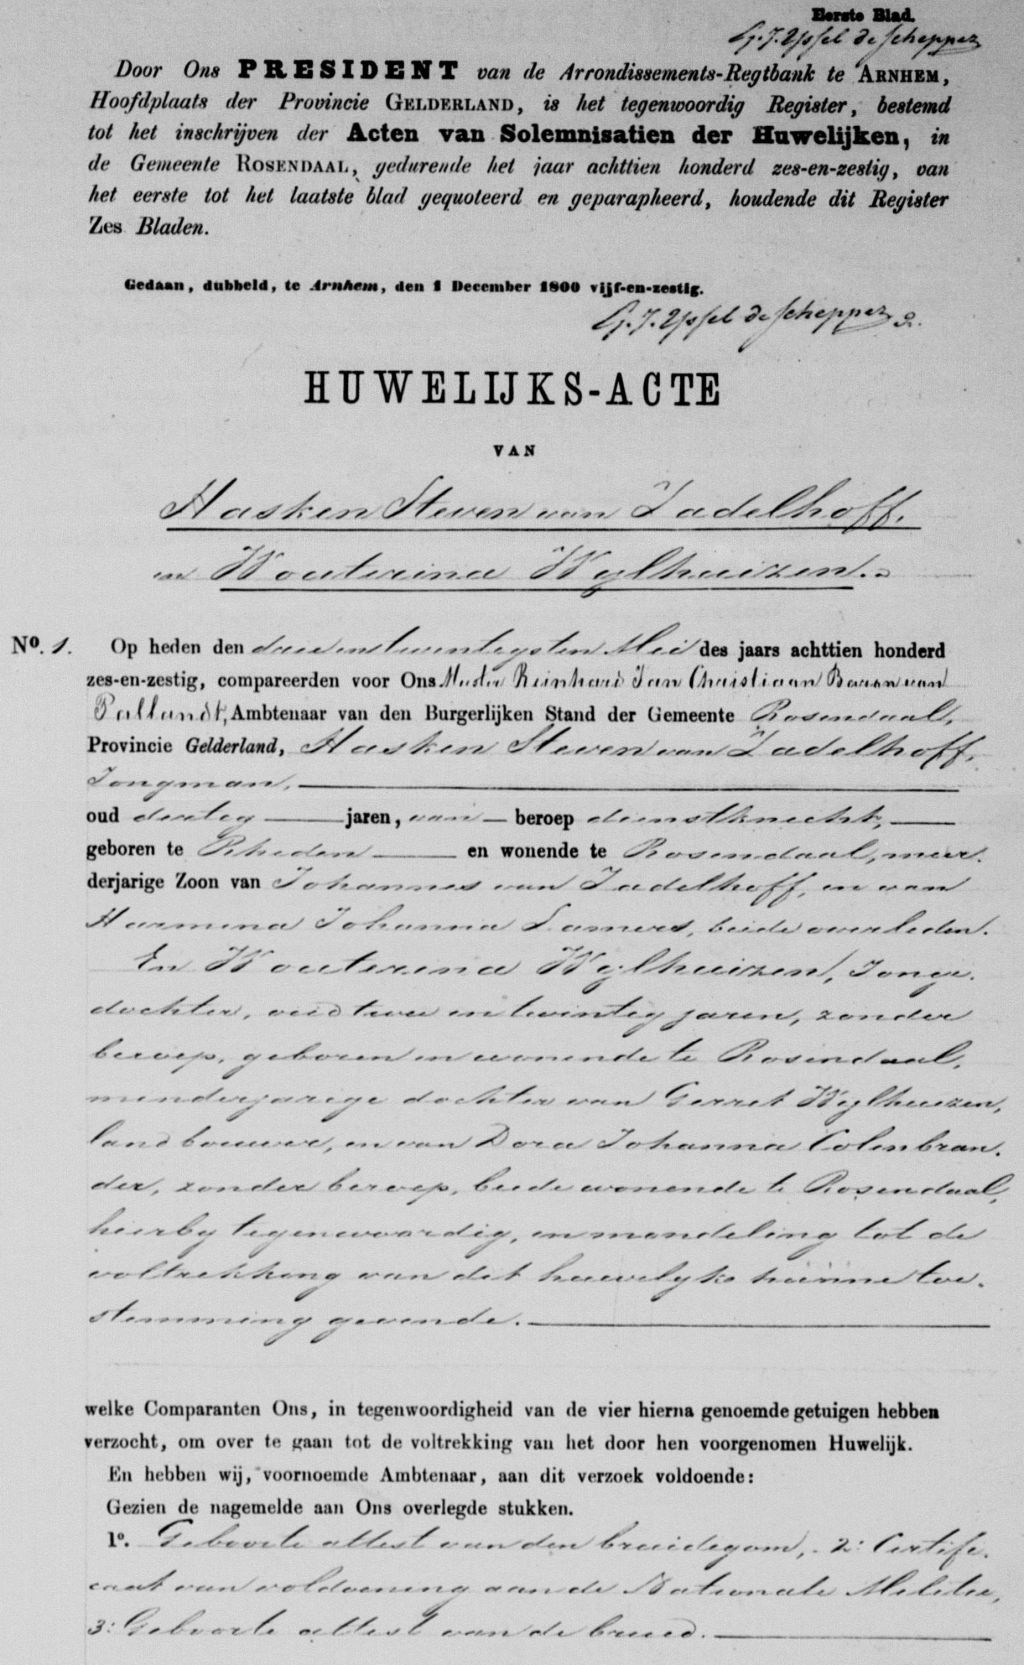 Eerste Blad.
G. J. IJssel de Schepper
Door Ons PRESIDENT van de Arrondissements-Regtbank te ARNHEM,
Hoofdplaats der Provincie GELDERLAND, is het tegenwoordig Register, bestemd
tot het inschrijven der Acten van Solemnisatien der Huwelijken, in
de Gemeente ROSENDAAL, gedurende het jaar achttien honderd zes-en-zestig, van
het eerste tot het laatste blad gequoteerd en geparapheerd, houdende dit Register
Zes Bladen.
Gedaan, dubbeld, te Arnhem, den 1 December 1800 vijf-en-zestig.
G. J. IJssel de Schepper
HUWELIJKS-ACTE
VAN
Hasken Steven van Zadelhoff,
en Wouterina Wylhuizen.
No. 1. Op heden den drieentwintigsten Mei des jaars achttien honderd
zes-en-zestig, compareerden voor Ons Meester Reinhard Jan Christiaan Baron van
Pallandt, Ambtenaar van den Burgerlijken Stand der Gemeente Rosendaal,
Provincie Gelderland, Hasken Steven van Zadelhoff,
Jongman,
oud dertig jaren, van beroep dienstknecht,
geboren te Rheden en wonende te Rosendaal, meer-
derjarige Zoon van Johannes van Zadelhoff, en van
Harmina Johanna Lamers, beide overleden.
En Wouterina Wylhuizen, Jonge-
dochter, oud twee en twintig jaren, zonder
beroep, geboren en wonende te Rosendaal,
minderjarige dochter van Gerret Wylhuizen,
landbouwer, en van Dora Johanna Colenbran-
der, zonder beroep, beide wonende te Rosendaal,
hierby tegenwoordig, en mondeling tot de
voltrekking van dit huwelyk hunne toe-
stemming gevende.
welke Comparanten Ons, in tegenwoordigheid van de vier hierna genoemde getuigen hebben
verzocht, om over te gaan tot de voltrekking van het door hen voorgenomen Huwelijk.
En hebben wij, voornoemde Ambtenaar, aan dit verzoek voldoende:
Gezien de nagemelde aan Ons overlegde stukken.
1o. Geboorte attest van den bruidegom, 2: Certifi-
caat van voldoening aan de Nationale Militie,
3: Geboorte attest van de bruid.